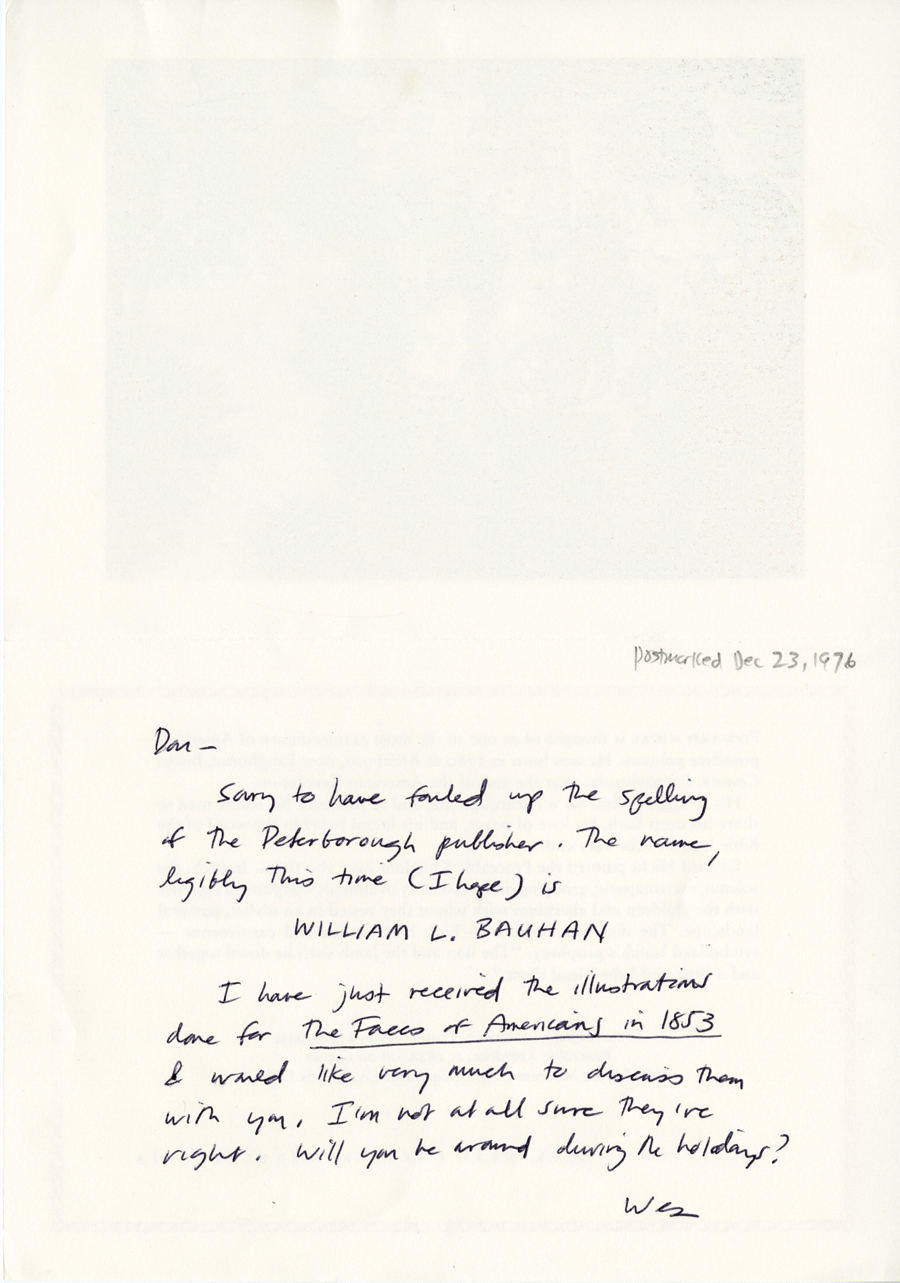 Postmarked Dec 23, 1976
Don –
Sorry to have fouled up the spelling
of the Peterborough publisher. The name,
legibly this time (I hope) is
WILLIAM L. BAUHAN
I have just received the illustrations
done for The Faces of Americans in 1853
& would like very much to discuss them
with you. I'm not at all sure they're
right. Will you be around during the holidays?
Wes